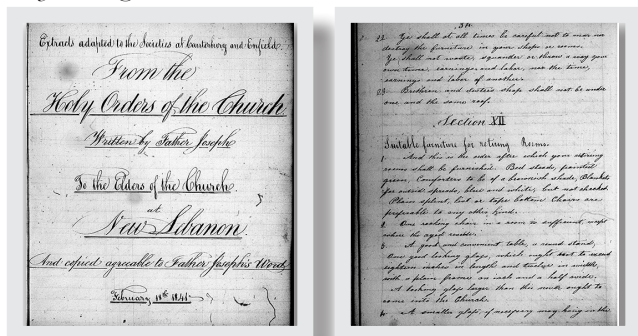 Extracts adapted to the Societies at Canterbury and Enfield.
From the
Holy Orders of the Church
Written by Father Joseph
To the Elders of the Church
at
New Lebanon
And copied agreeable to Father Joseph's Word
February 18th 1841
22 Ye shall at all times be careful not to mar nor
destroy the furniture in your shops or rooms.
Ye shall not waste, squander or throw away your
own time, earnings and labor, nor the time,
earnings and labor of another.
23 Brethren and sisters shops shall not be under
one and the same roof.
Section XII
Suitable furniture for retiring Rooms.
1 And this is the order after which your retiring
rooms shall be furnished. Bed steads, painted
green, Comforters to be of a brownish shade, Blankets
for outside spreads, blue and white, but not checked.
Plain splint, list or tape bottom Chairs are
preferable to any other kind.
2 One rocking chair in a room is sufficient, except
where the aged reside.
3 A good and convenient table, a round stand,
One good looking glass, which ought not to exceed
eighteen inches in length and twelve in width,
with a plain frame an inch and a half wide.
A looking glass larger than this ought to
come into the Church.
4 A smaller glass, if necessary may hang in the